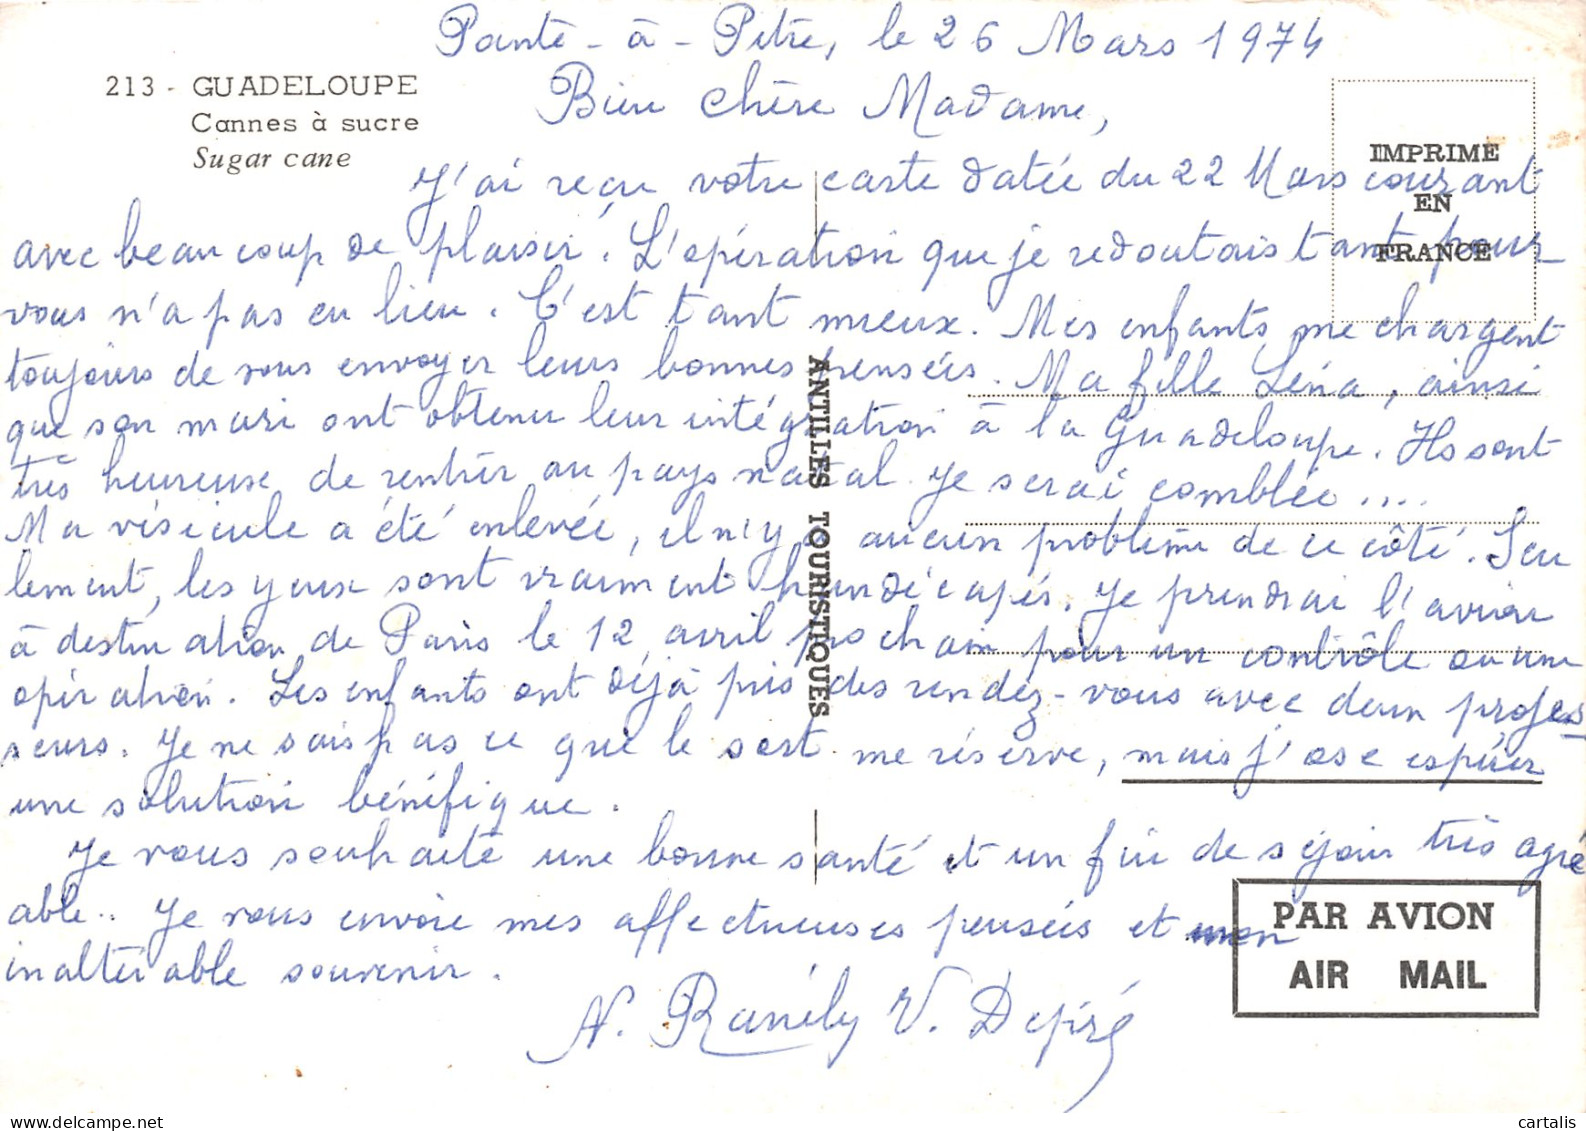 Pointe-à-Pitre, le 26 Mars 1974
213 - GUADELOUPE
Cannes à sucre
Sugar cane
Bien chère Madame,
IMPRIME
EN
FRANCE
J'ai reçu votre carte datée du 22 Mars courant
avec beaucoup de plaisir. L'opération que je redoutais tant pour
vous n'a pas eu lieu. C'est tant mieux. Mes enfants me chargent
toujours de vous envoyer leurs bonnes pensées. Ma fille Léna, ainsi
que son mari ont obtenu leur intégration à la Guadeloupe. Ils sont
très heureuse de rentrer au pays natal. Je serai comblée....
Ma vésicule a été enlevée, il n'y a aucun problème de ce côté. Seu
lement, les yeux sont vraiment handicapés. Je prendrai l'avion
à destination de Paris le 12 avril prochain pour un contrôle ou une
opération. Les enfants ont déjà pris des rendez-vous avec deux profes
seurs. Je ne sais pas ce que le sort me réserve, mais j'ose espérer
une solution bénéfique.
Je vous souhaite une bonne santé et un fin de séjour très agré
able.. Je vous envoie mes affectueuses pensées et mon
inaltérable souvenir.
ANTILLES TOURISTIQUES
PAR AVION
AIR MAIL
N. Ranély V. Depré
cartalis